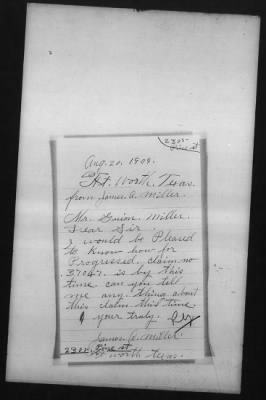 2305-
Pine st
Aug. 20. 1908.
Ft. Worth, Texas.
from James A. Miller.
Mr. Guion Miller.
Dear Sir.
I would be Pleased
to Know how far
Progressed. claim no
37047. is by this
time can you tell
me any thing about
this claim this time
your truly.
James A. Miller
2305 Pine st
Ft worth Texas.